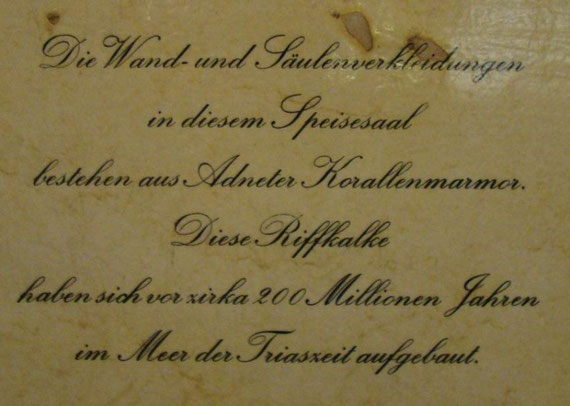 Die Wand- und Säulenverkleidungen
in diesem Speisesaal
bestehen aus Adneter Korallenmarmor.
Diese Riffkalke
haben sich vor zirka 200 Millionen Jahren
im Meer der Triaszeit aufgebaut.